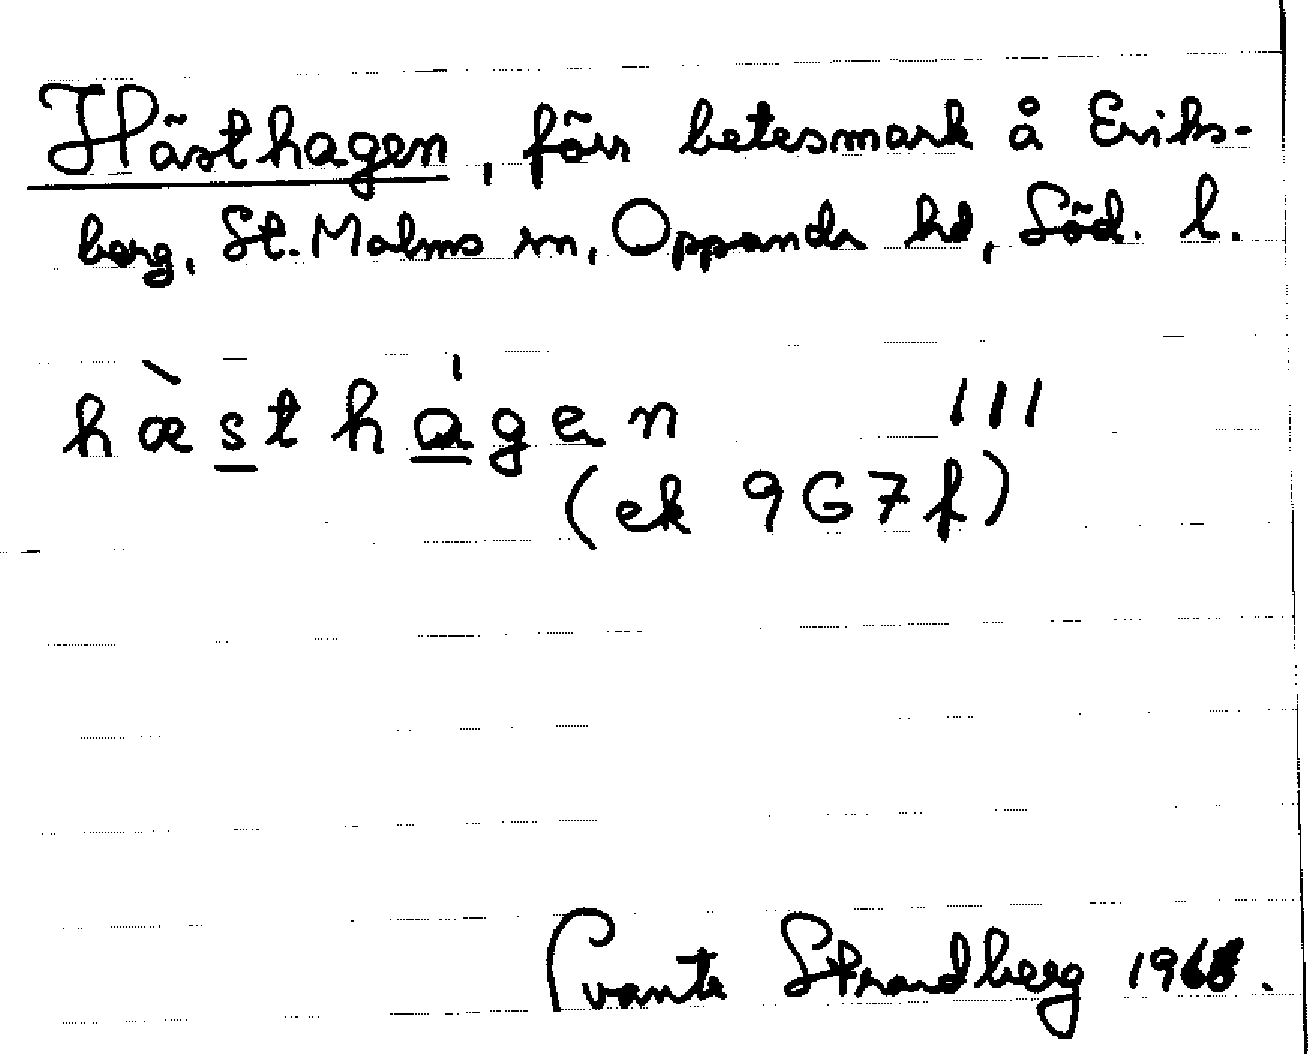 Hästhagen, förr betesmark å Eriks-
berg, St. Malms sn, Oppunda hd, Söd. l.
hæ̀sthágen ///
(ek 9G7f)
Svante Strandberg 1968.